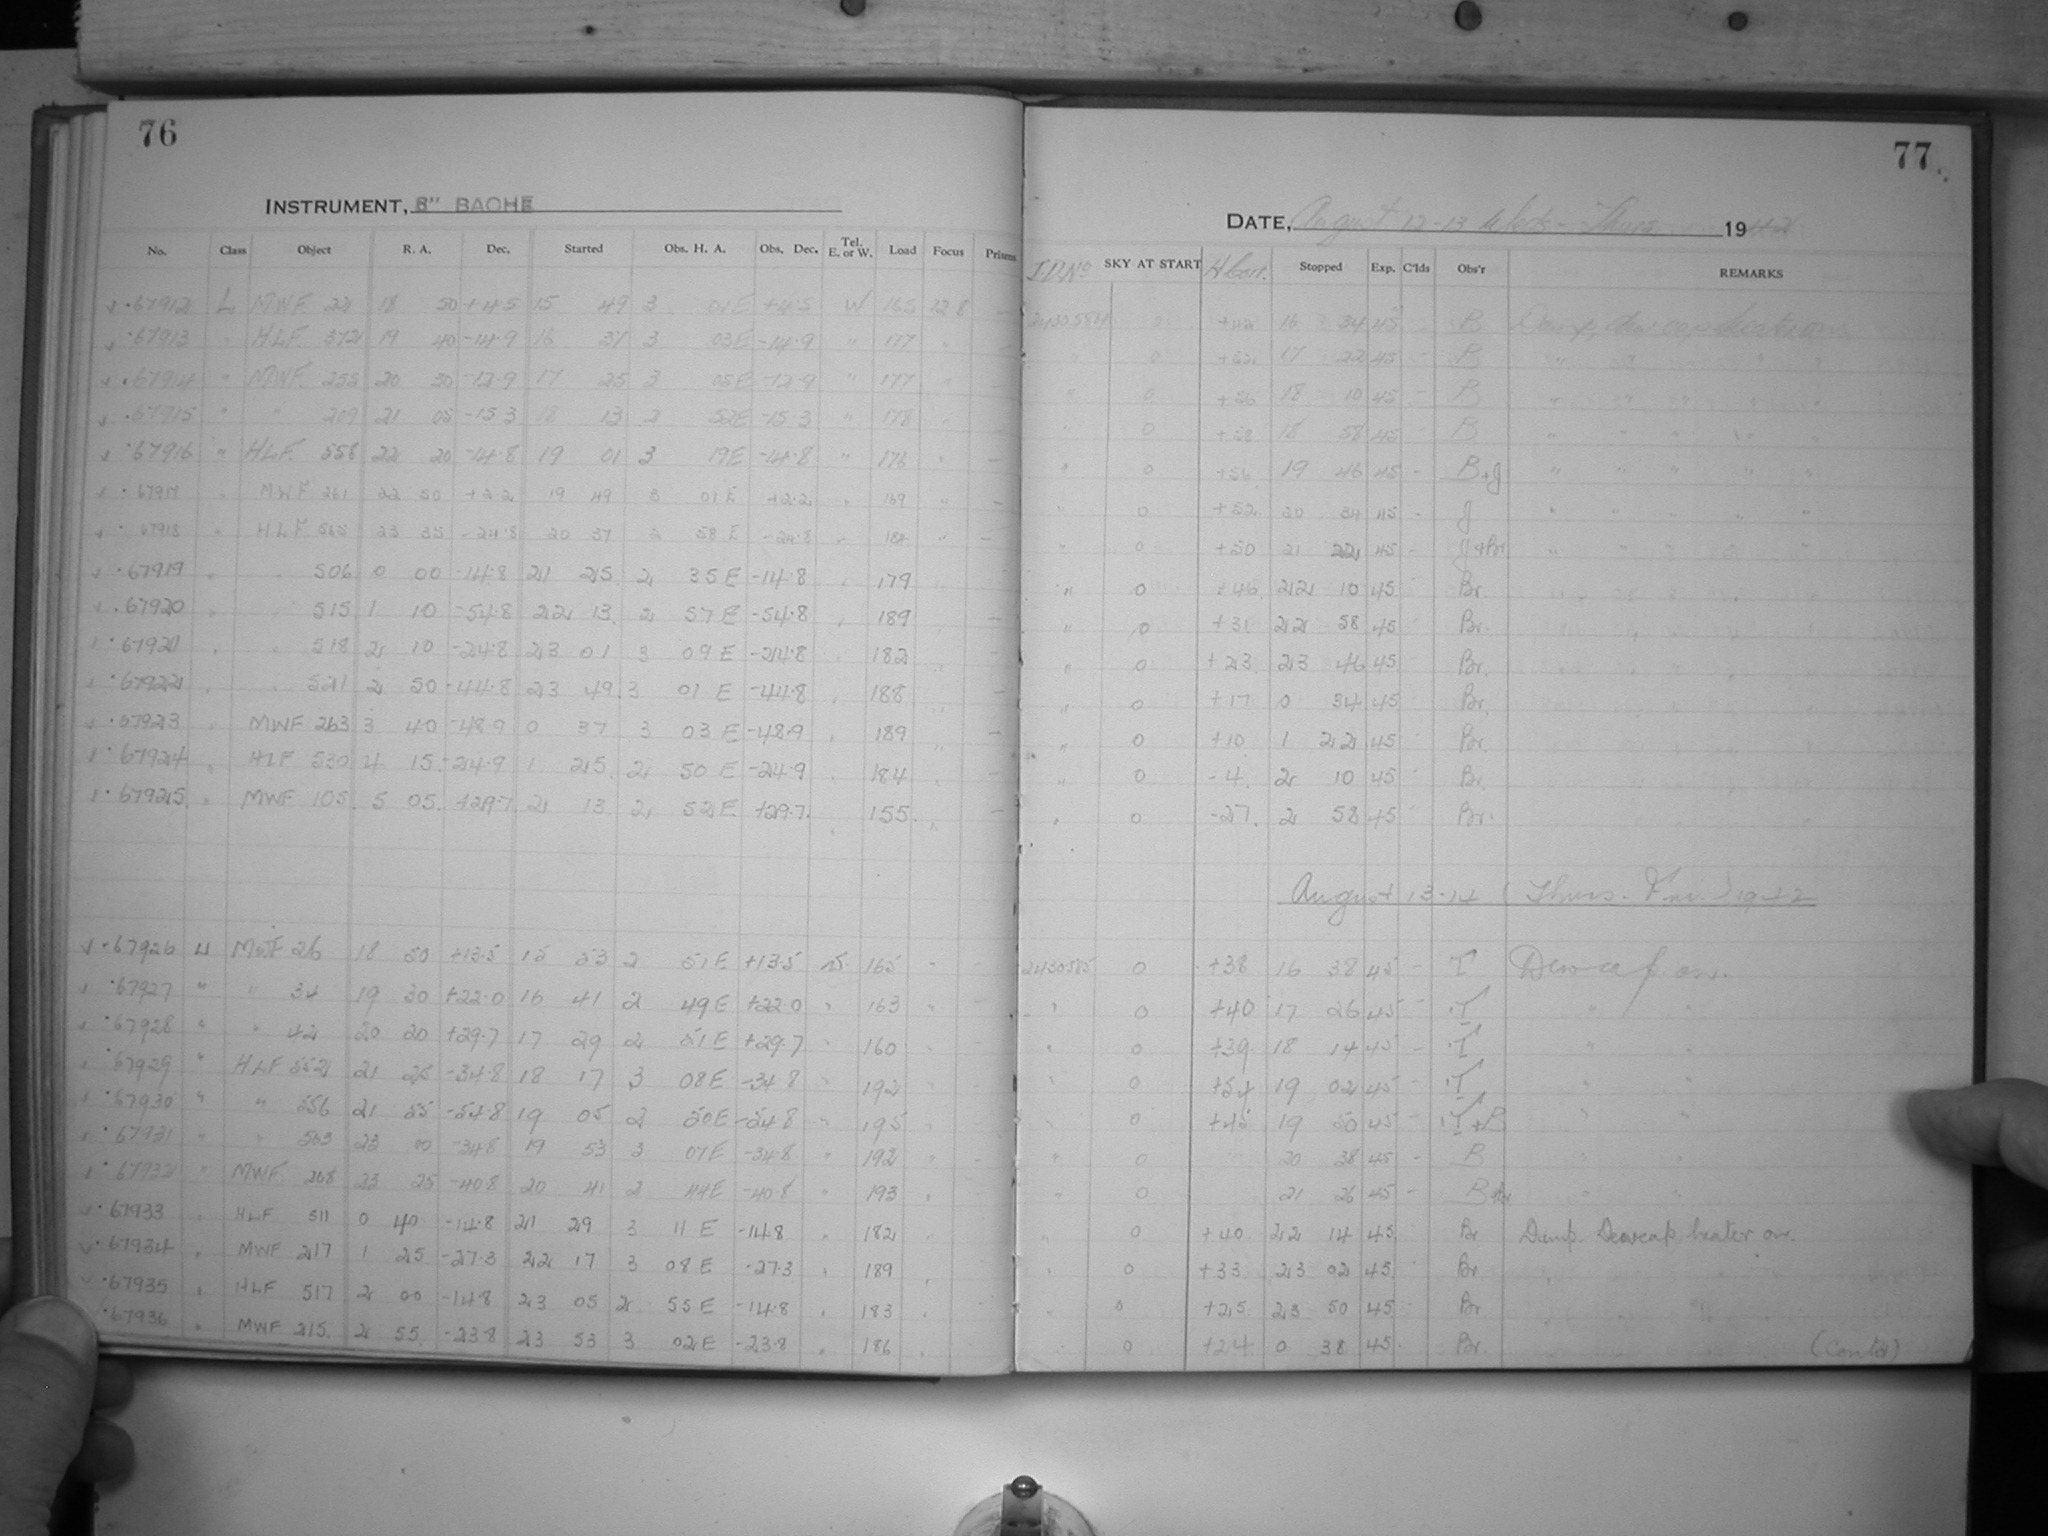 76
INSTRUMENT, 8" BACHE
No. Class Object R. A. Dec. Started Obs. H. A. Obs. Dec. Tel. E. or W. Load Focus Prisms
67912 L MWF 22 18 50 +4.5 15 49 3 01 E +4.5 W 165 12.8
67913 " HLF 19 40 -14.9 16 37 3 03 E -14.9 " 177 "
67914 " MWF 255 20 30 -12.9 17 25 3 05 E -12.9 " 177
67915 " " 209 21 05 -15.3 18 13 2 52 E -15.3 " 178
67916 " HLF. 558 22 20 -14.8 19 01 3 19 E -14.8 " 176
67917 MWF 261 22 50 +2.2 19 49 3 01 E +2.2 169
67918 HLF 565 23 35 -24.8 20 37 2 58 E -24.8
67919 506 0 00 -14.8 21 25 2 35 E -14.8 179
67920 515 1 10 -54.8 22 13 2 57 E -54.8 189
67921 518 2 10 -24.8 23 01 3 09 E -24.8 182
67922 521 2 50 -44.8 23 49 3 01 E -44.8 188
67923 MWF 263 3 40 -48.9 0 37 3 03 E -48.9 189
67924 HLF 530 4 15 -24.9 1 25 2 50 E -24.9 184
67925 MWF 105 5 05 +29.7 2 13 2 52 E +29.7 155
67926 L MWF 26 18 50 +13.5 15 53 2 51 E +13.5 165
67927 " " 34 19 30 +22.0 16 41 2 49 E +22.0 163
67928 " " 42 20 20 +29.7 17 29 2 51 E +29.7 160
67929 " HLF 552 21 25 -34.8 18 17 3 08 E -34.8 192
67930 " " 556 21 55 -54.8 19 05 2 50 E -54.8 195
67931 " " 563 23 00 -34.8 19 53 3 07 E -34.8 192
67932 " MWF. 268 23 25 -40.8 20 41 2 44 E -40.8 193
67933 HLF 511 0 40 -14.8 21 29 3 11 E -14.8 182
67934 MWF 217 1 25 -27.3 22 17 3 08 E -27.3 189
67935 HLF 517 2 00 -14.8 23 05 2 55 E -14.8 183
67936 MWF 215 2 55 -23.8 23 53 3 02 E -23.8 186
77
DATE, August 12-13 Weds - Thurs 1942
J.D. No SKY AT START H Corr. Stopped Exp. C'lds Obs'r REMARKS
2430584 16 34 45 B Damp,
0 17 22 45 B
0 18 10 45 B
0 18 58 45 B
0 19 46 45 B+J
0 +52 20 34 45 J
0 +50 21 22 45 J+Br
0 +46 22 10 45 Br.
0 +31 22 58 45 Br.
0 +23 23 46 45 Br.
0 +17 0 34 45 Br.
0 +10 1 22 45 Br.
0 -4 2 10 45 Br.
0 -27 2 58 45 Br.
August 13-14 (Thurs. - Fri.) 1942
2430585 0 +38 16 38 45 - T Dewcap on.
0 +40 17 26 45 - T
0 +39 18 14 45 - T
0 +54 19 02 45 - T
0 +45 19 50 45 - T+B
0 20 38 45 - B
0 21 26 45 - B+Br
0 +40 22 14 45 Br Damp. Dewcap heater on.
0 +33 23 02 45 Br
0 +25 23 50 45 Br
0 +24 0 38 45 Br.
(Contd)